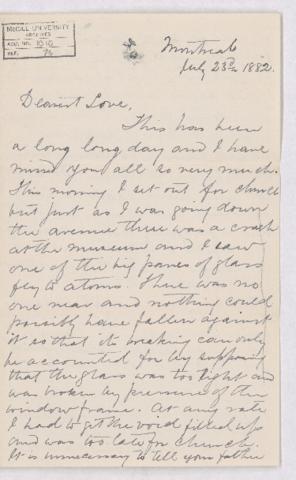 McGILL UNIVERSITY
ARCHIVES
ACC. NO. 1016
REF.
Montreal
July 23rd 1882.
Dearest Love,
This has been
a long long day and I have
missed you all so very much.
This morning I set out for church
but just as I was going down
the avenue there was a crash
at the museum and I saw
one of the big panes of glass
fly to atoms. There was no
one near and nothing could
possibly have fallen against
it so that its breaking can only
be accounted for by supposing
that the glass was too tight and
was broken by pressure of the
window frame. At any rate
I had to get the void filled up
and was too late for church.
It is unnecessary to tell your father